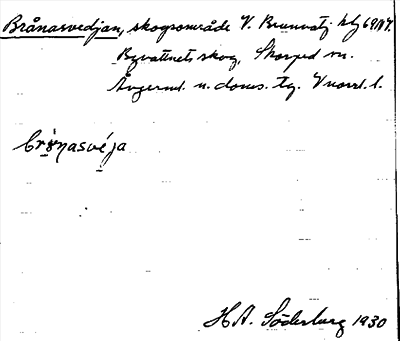 Brånasvedjan, skogsområde V. Brunvatj. kbl 69 NV.
Byvattnets skog, Skorped sn.
Ångerml. n. doms. tg. Vnorrl. l.
brånasvéja
H.A. Söderburg 1930